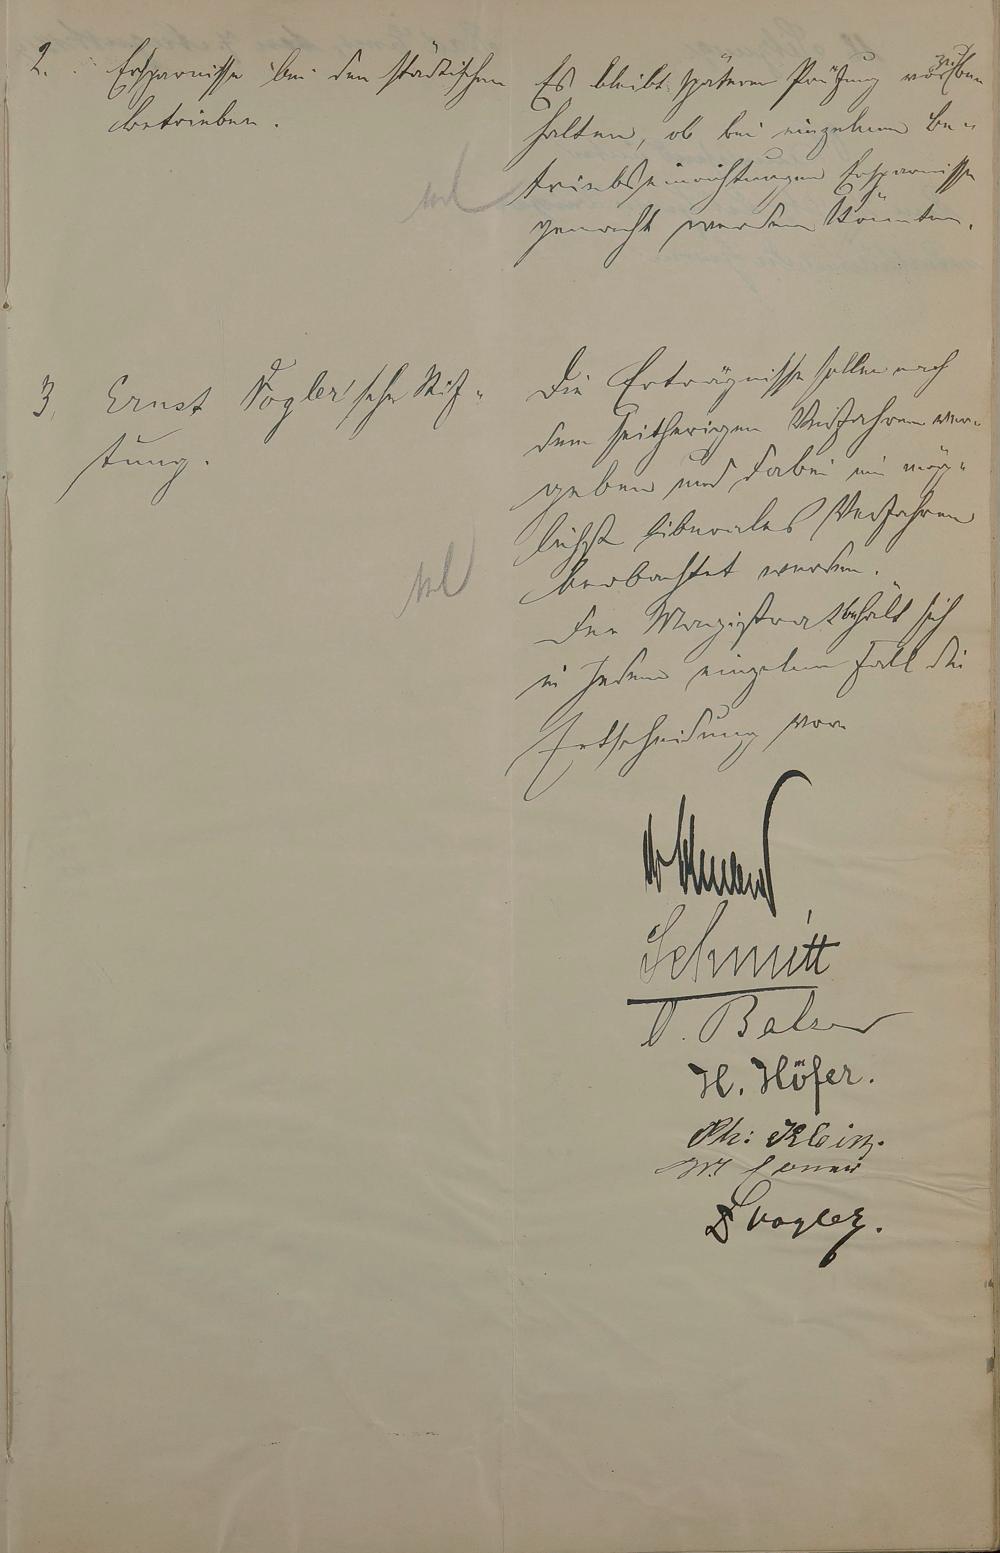 2. Ersparnisse bei den städtischen
Betrieben.
Es bleibt späterer Prüfung vorbe-
halten, ob bei einzelnen Be-
triebseinrichtungen Ersparnisse
gemacht werden könnten.
3. Ernst Vogler'sche Stif-
tung.
Die Erträgnisse sollen nach
dem seitherigen Verfahren ver-
geben und dabei ein mög-
lichst liberales Verfahren
beobachtet werden.
Der Magistrat behält sich
in jedem einzelnen Fall die
Entscheidung vor.
Schmitt
Balzer
H. Höfer.
Ph: Klein.
Vogler.